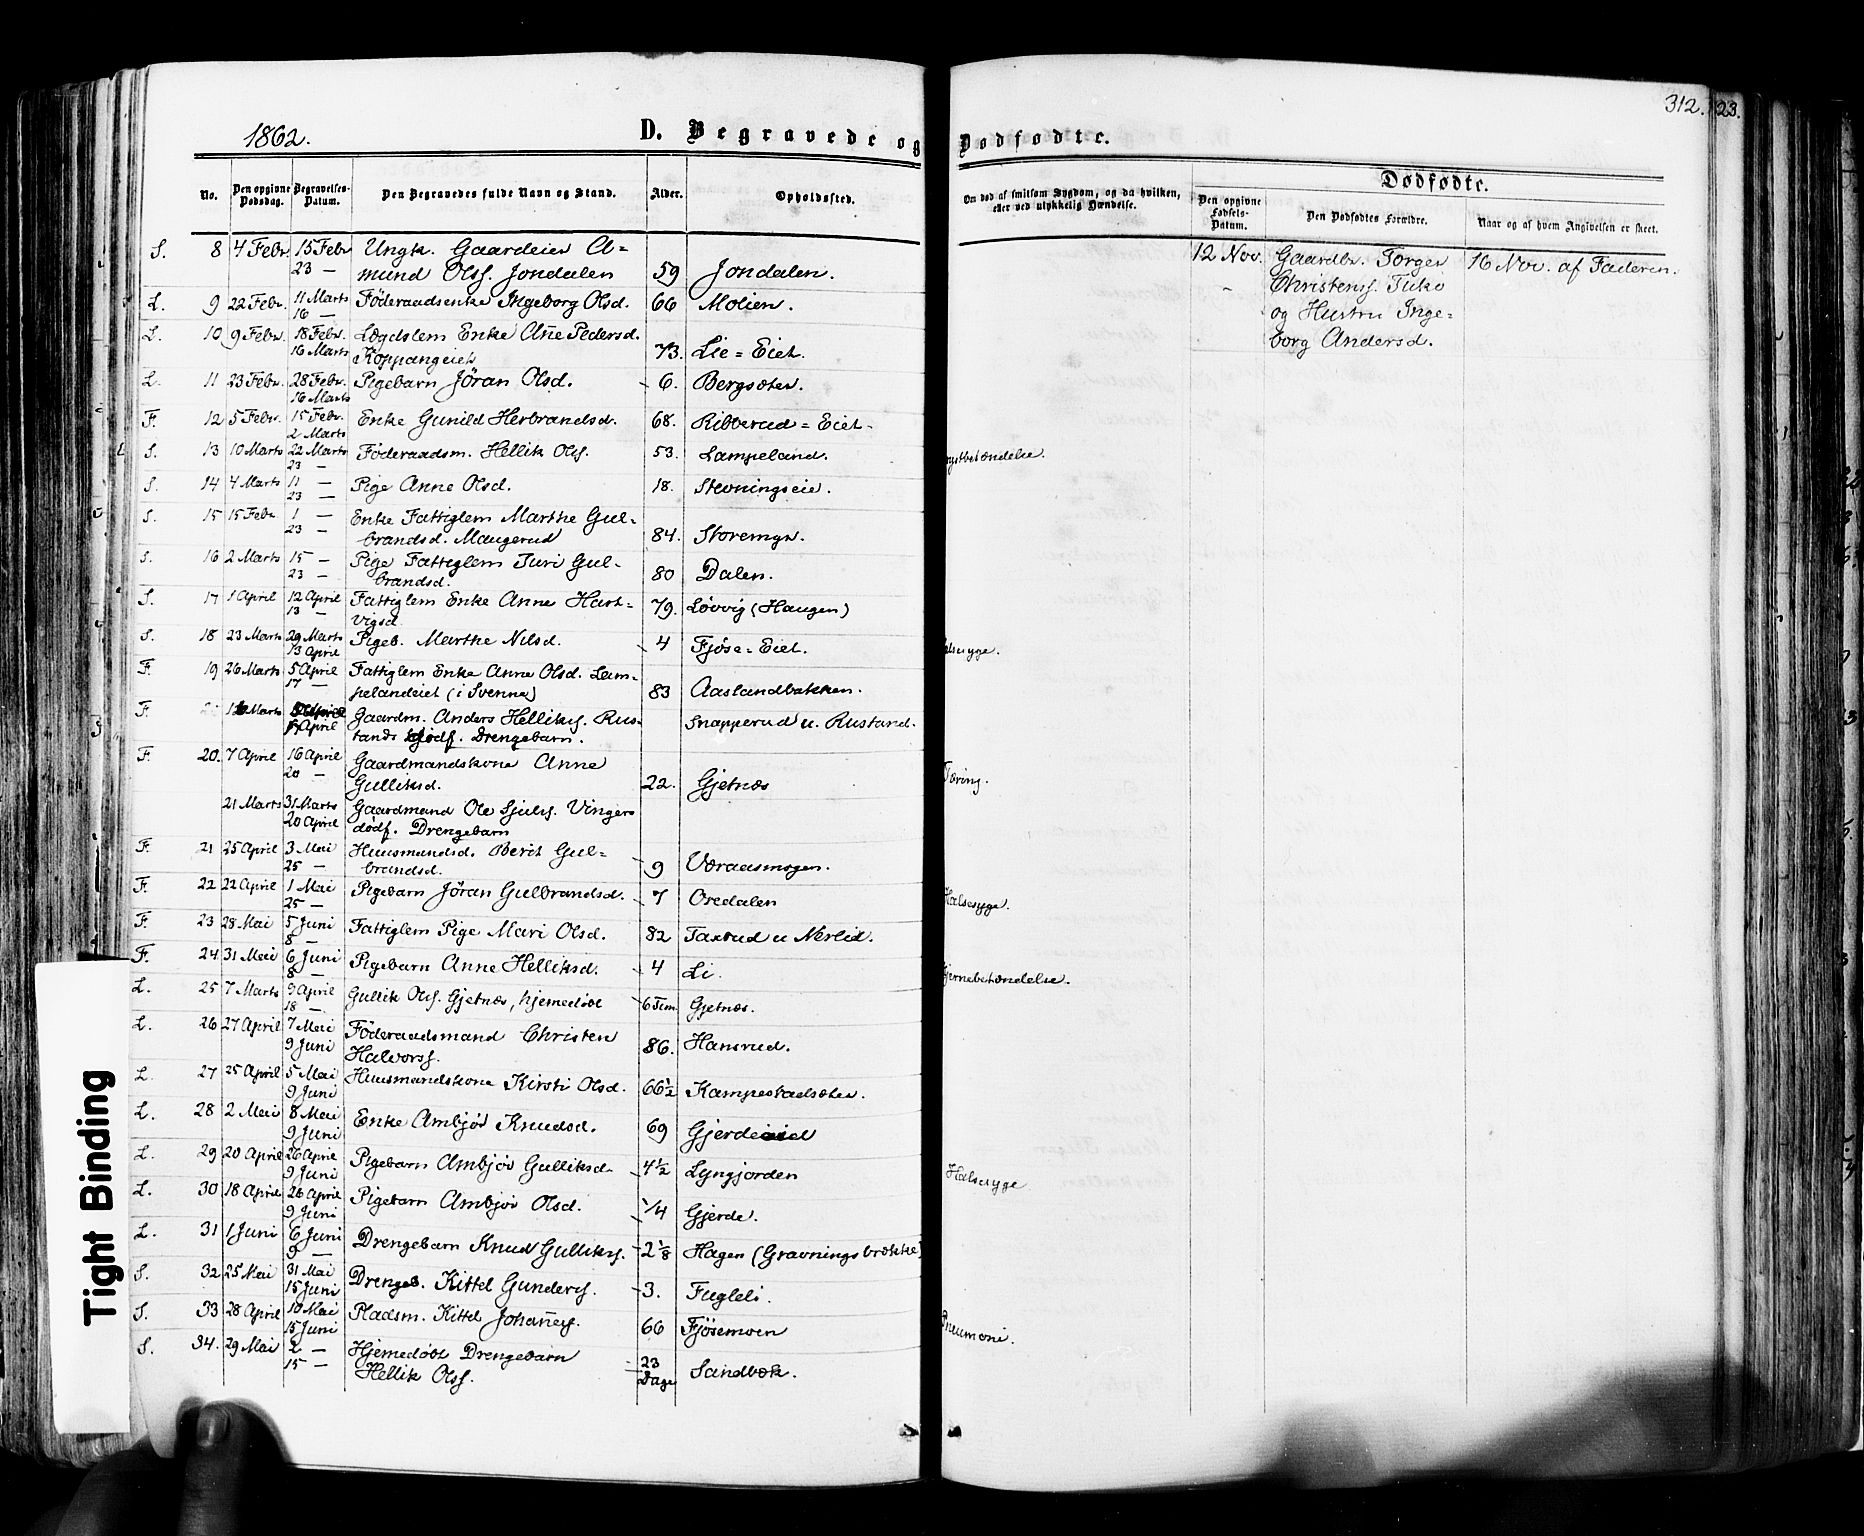 312. 123.
1862.
D. Begravede og Dødfødte.
No.
Den opgivne Dødsdag.
Begravelses-Datum.
Den Begravedes fulde Navn og Stand.
Alder.
Opholdssted.
Om død af smitsom Sygdom, og da hvilken, eller ved ulykkelig Hændelse.
Dødfødte.
Den opgivne Fødsels-Datum.
Den Dødfødtes Forældre.
Naar og af hvem Angivelsen er skeet.
S. 8 4 Febr. 15 Febr Ungk. Gaardeier A=
23 — mund Olss. Jondalen 59 Jondalen.
12 Nov. Gaardbr. Torger 16 Nov. af Faderen.
Christenss.
og Hustru Inge=
borg Andersd.
L. 9 22 Febr. 11 Marts Föderaadsenke Ingeborg Olsd. 66 Molien.
16 —
L. 10 9 Febr. 18 Febr. Lægdslem Enke Ane Pedersd.
16 Marts Koppangeiet 73. Lie = Eiet.
L. 11 23 Febr. 28 Febr. Pigebarn Jöran Olsd. 6. Bergsæter.
16 Marts
F. 12 5 Febr. 15 Febr. Enke Gunild Herbrandsd. 68. Ribberud = Eiet.
2 Marts
S. 13 10 Marts 22 Marts Föderaadsm. Hellik Olss. 53. Lampeland. rystbetændelse.
23 —
S. 14 4 Marts 11 — Pige Anne Olsd. 18. Stevningseie.
23 —
S. 15 15 Febr 1 — Enke Fattiglem Marthe Gul=
23 — brandsd. Maugerud 84. Storemyr.
S. 16 2 Marts 15 — Pige Fattiglem Turi Gul=
23 — brandsd. 80 Dalen.
S. 17 1 April 12 April Fattiglem Enke Anne Hart=
13 — vigsd 79. Løvvig (Haugen)
S. 18 23 Marts 29 Marts Pigeb. Marthe Nilsd. 4 Fjøse=Eiet. alssyge.
13 April
F. 19 26 Marts 5 April Fattiglem Enke Anne Olsd. Lam=
17 — pelandeiet (i Svenne) 83 Aaslandbakken.
F. Marts Gaardm. Anders Helliks. Rus= Snapperud u. Rustand.
April tands dødf. Drengebarn.
F. 20. 7 April 16 April Gaardmandskone Anne
20 — Gulliksd. 22. Gjetnæs Tæring.
21 Marts 31 Marts Gaardmand Ole Sjuls. Vingers
20 April dødf. Drengebarn
F. 21 25 April 3 Mai Huusmandsd. Berit Gul=
25 — brandsd. 9 Væraasmogen.
F. 22 22 April 1 Mai Pigebarn Jöran Gulbrandsd. 7 Oredalen Halssyge.
25 —
F. 23 28 Mai 5 Juni Fattiglem Pige Mari Olsd. 82 Taxrud u Nerlid.
8 —
F. 24 31 Mai 6 Juni Pigebarn Anne Helliksd. 4 Li. Hjernebetændelse.
8 —
L. 25 7 Marts 9 April Gullik Olss. Gjetnæs, hjemedöbt 6 Tim Gjetnæs.
18 —
L. 26 27 April 7 Mai Föderaadsmand Christen
9 Juni Halvorss. 86. Hansrud.
L. 27 25 April 5 Mai Huusmandskone Kirsti Olsd. 66½ Kampestadsæter.
9 Juni
L. 28 2 Mai 8 Mai Enke Ambjør Knudsd. 69
9 Juni
L. 29 20 April 26 April Pigebarn Ambjör Gulliksd. 4½ Lyngjorden Halssyge
9 Juni
L. 30 18 April 26 April Pigebarn Ambjör Olsd. ¼ Gjerde.
9 Juni
L. 31 1 Juni 6 Juni Drengebarn Knud Gulliks. 2⅛ Hagen (Gravningsbrække)
9 —
S. 32 25 Mai 31 Mai Drengeb. Kittel Gunders. 3. Fugleli.
15 Juni
S. 33 28 April 10 Mai Pladsm. Kittel Johaness. 66 Fjösemoen Pneumoni.
15 Juni
S. 34. 29 Mai 2 — Hjemedöbt Drengebarn 23
15 — Hellik Olss. Dage Sandbæk.
Tight Binding